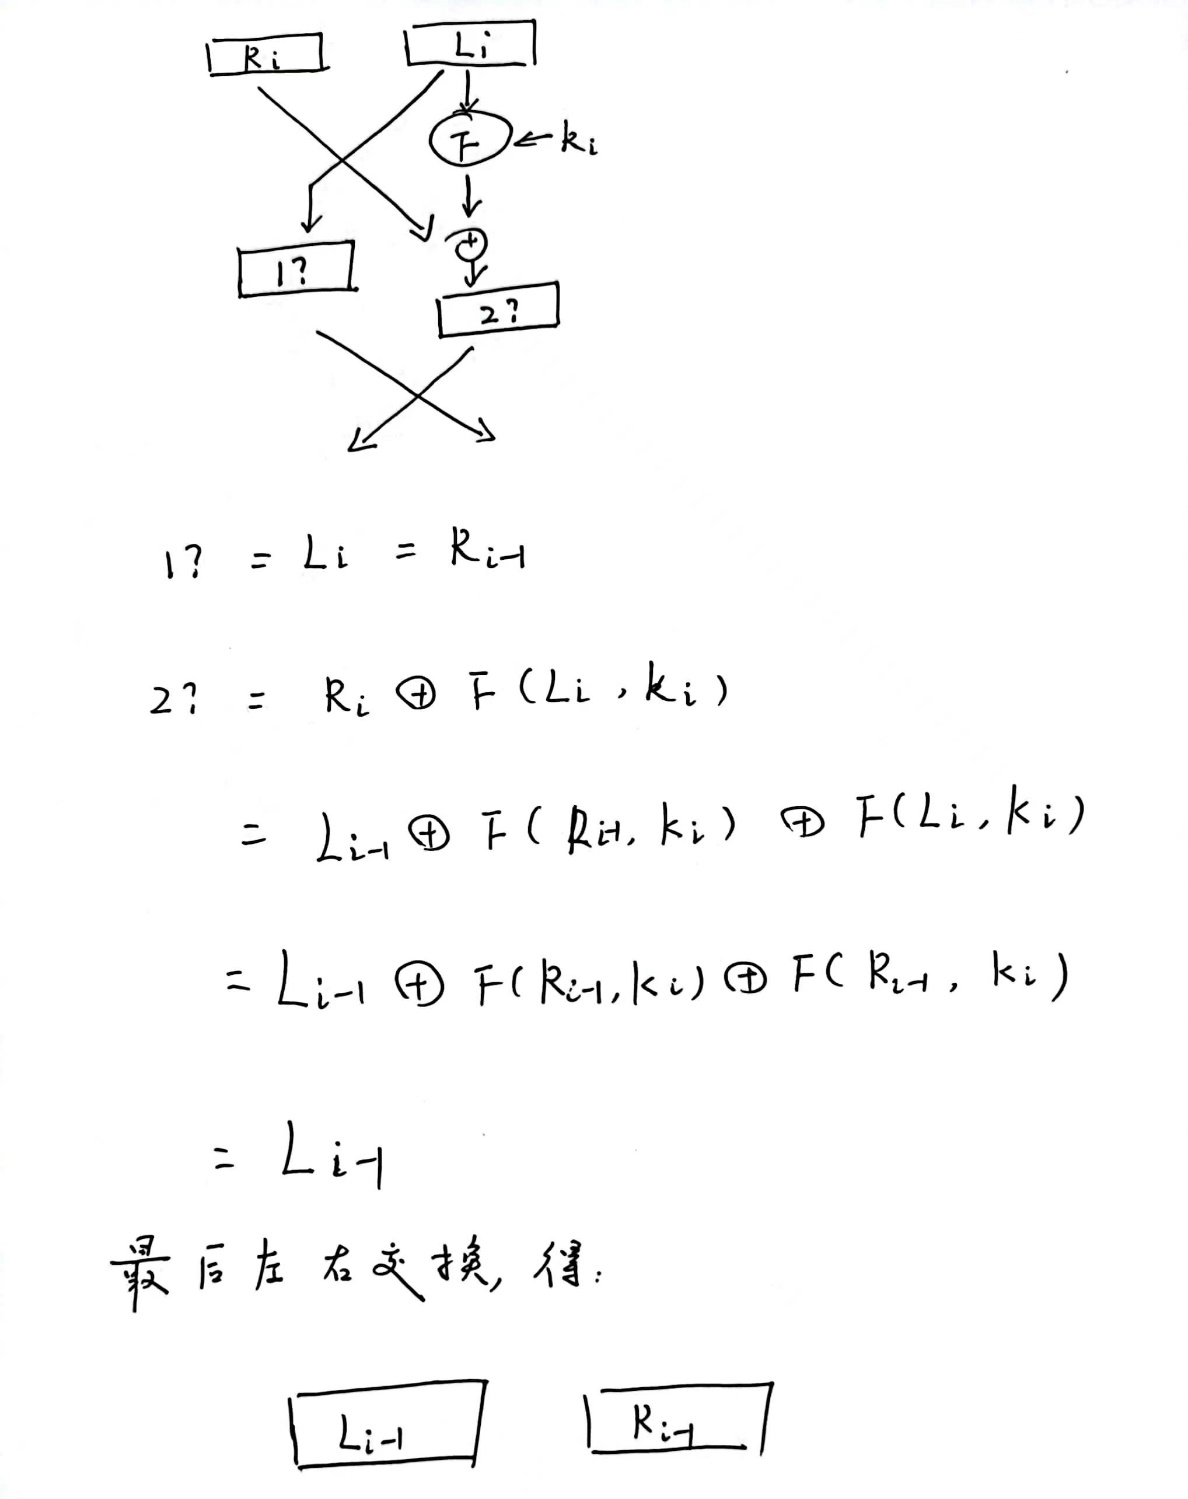 Ri Li
F ← ki
⊕
1?
2?
1? = Li = Ri-1
2? = Ri ⊕ F (Li , ki)
= Li-1 ⊕ F ( Ri-1, ki ) ⊕ F(Li, ki)
= Li-1 ⊕ F(Ri-1, ki) ⊕ F( Ri-1, ki )
= Li-1
最后左右交换, 得:
Li-1 Ri-1